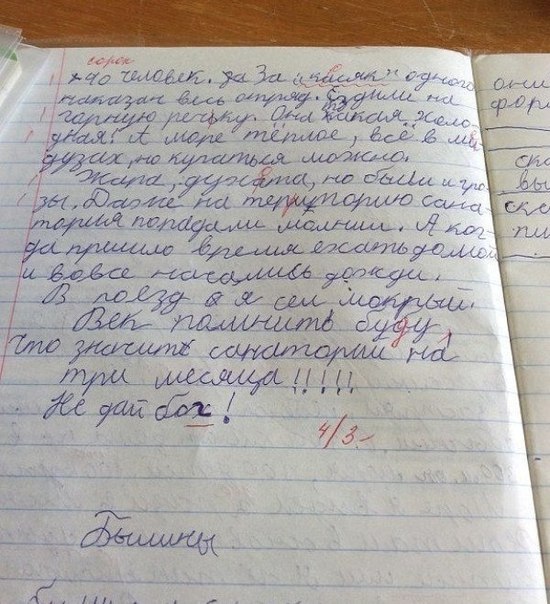 сорок
40 человек. За "касяк" одного
наказан весь отряд. Ездили на
горную речьку. Она какая холо-
дная! А море тёплое, всё в ме-
дузах, но купаться можно.
Жара, духата, но были и гро-
зы. Даже на территорию сана-
тория попадали молнии. А ког-
да пришло время ехать домой
и вовсе начались дожди.
В поезд я сел мокрый.
Век помнить буду,
что значить санаторий на
три месяца!!!!!
Не дай бох!
4/3-
Былины
они
фор
вы
ско